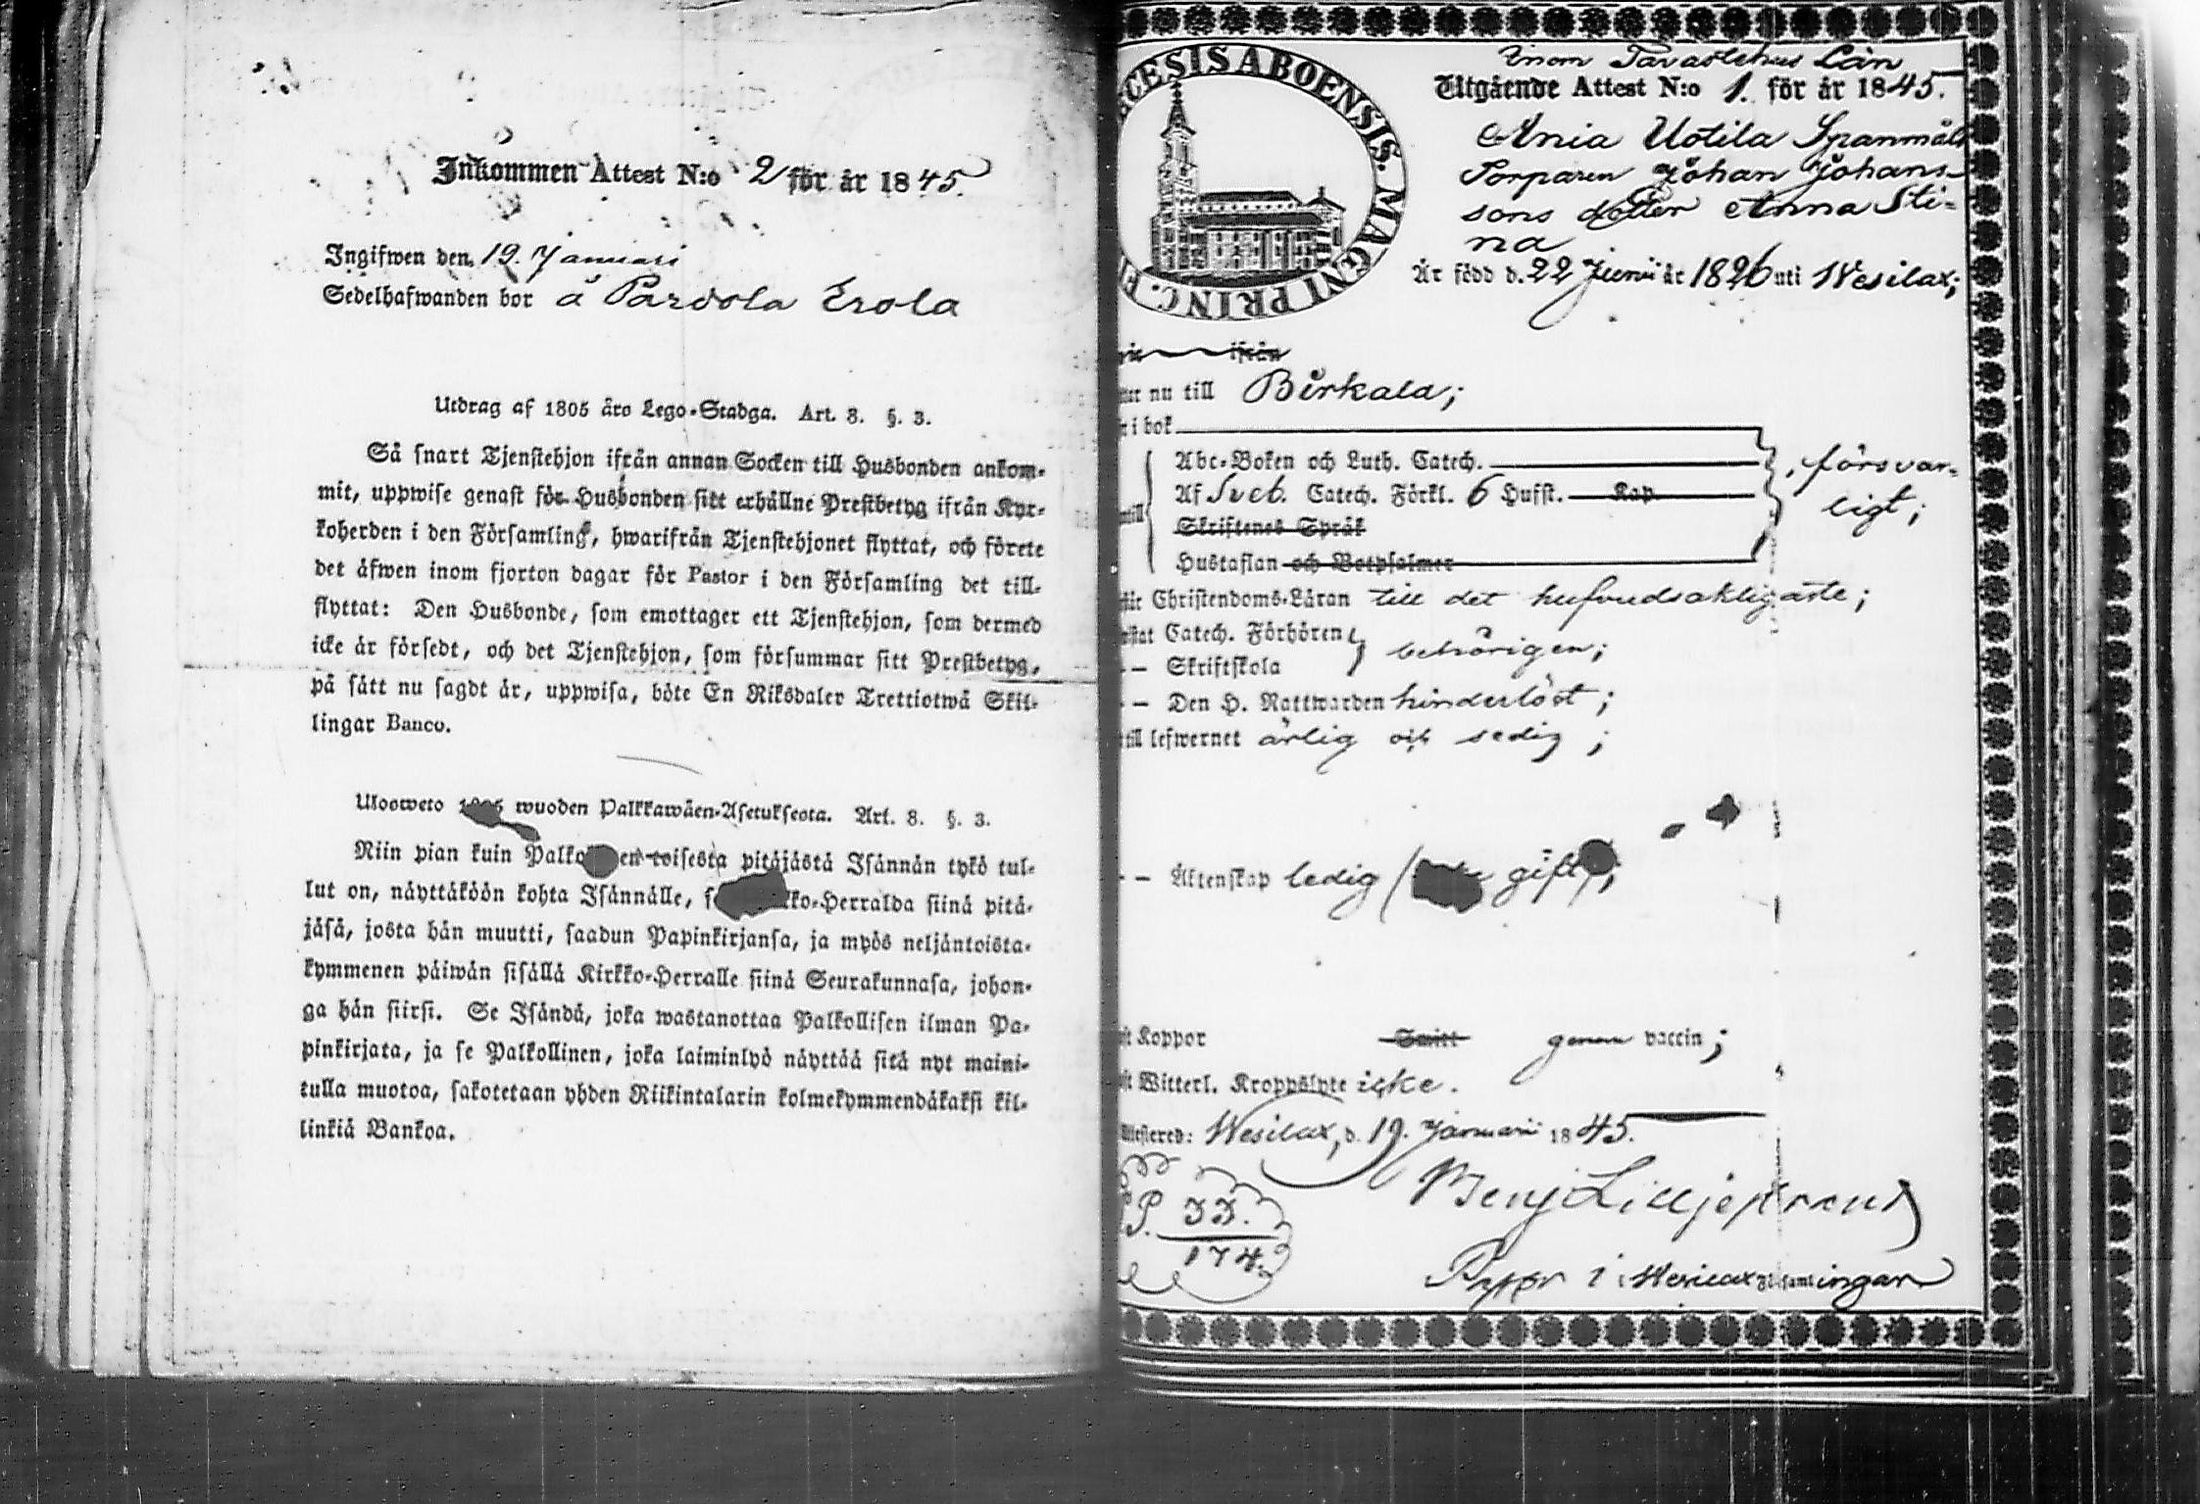 Inkommen Attest N:o 2 för år 1845.
Ingifwen den 19. Januari
Sedelhafwanden bor å Pardola Erola
Utdrag af 1805 års Lego-Stadga. Art. 8. §. 3.
Så snart Tjenstehjon ifrån annan Socken till Husbonden ankom-
mit, uppwise genast för Husbonden sitt erhållne Prestbetyg ifrån Kyr-
koherden i den Församling, hwarifrån Tjenstehjonet flyttat, och förete
det äfwen inom fjorton dagar för Pastor i den Församling det till-
flyttat: Den Husbonde, som emottager ett Tjenstehjon, som dermed
icke är försedt, och det Tjenstehjon, som försummar sitt Prestbetyg,
på sätt nu sagdt är, uppwisa, böte En Riksdaler Trettiotwå Skil-
lingar Banco.
Ulosweto wuoden Palkkawäen-Asetuksesta. Art. 8. §. 3.
Niin pian kuin toisesta pitäjästä Isännän tykö tul-
lut on, näyttäköön kohta Isännälle, -Herralda siinä pitä-
jäsä, josta hän muutti, saadun Papinkirjansa, ja myös neljäntoista-
kymmenen päiwän sisällä Kirkko-Herralle siinä Seurakunnasa, johon-
ga hän siirsi. Se Isändä, joka wastanottaa Palkollisen ilman Pa-
pinkirjata, ja se Palkollinen, joka laiminlyö näyttää sitä nyt maini-
tulla muotoa, sakotetaan yhden Riikintalarin kolmekymmendäkaksi kil-
linkiä Bankoa.
CESIS ABOENSIS. MAGNI PRINC. F
Inom Tavastehus Län
Utgående Attest N:o 1. för år 1845.
Ania Uotila Spanmåls
Torparen Johan Johans-
sons dotter Anna Sti-
na
Är född d. 22 Junii år 1826 uti Wesilax;
ifrån
nu till Birkala;
i bok
Abc-Boken och Luth. Catech. försvar-
Af Svet. Catech. Förkl. 6 Hufst. Kap ligt;
Skriftenes Språk
Hustaflan och Botpsalmer
Christendoms-Läran till det hufvudsakligaste;
Catech. Förhören
- Skriftskola behörigen;
- - Den H. Nattwarden hinderlöst;
till lefwernet ärlig och sedig;
- - Äktenskap ledig ( gift);
Koppor Smitt genom vaccin;
Witterl. Kroppslyte icke.
Wesilax, d. 19. Januarii 1845.
P. 33.
174.
Benj Lilljestrand
Pastor i Wesilax församlingar